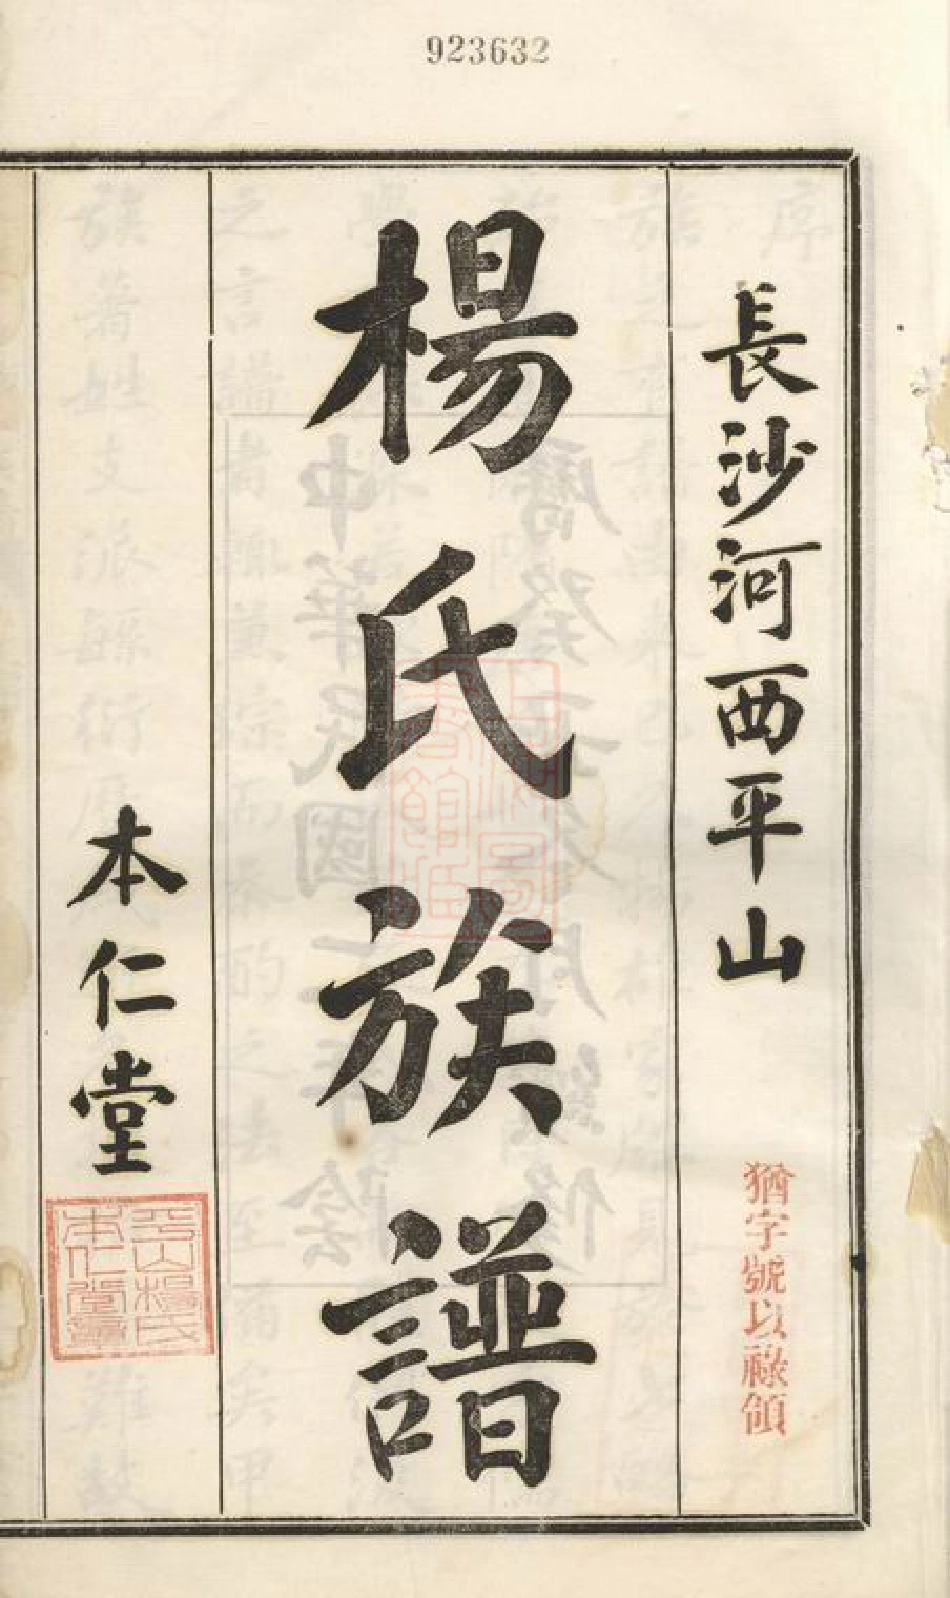 923632
長沙河西平山
猶字號以祿領
楊氏族譜
本仁堂
平山楊氏
本仁堂章